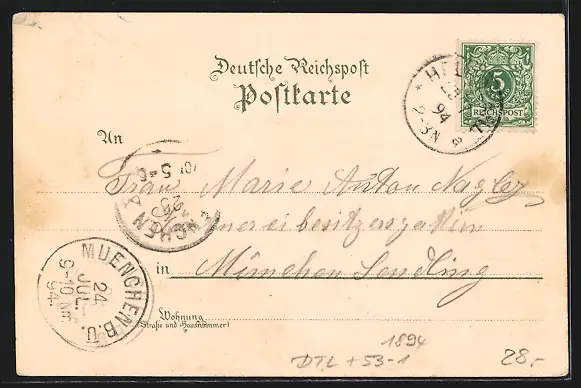 Deutsche Reichspost
Postkarte
5
REICHSPOST
94
2-3N
An
5-6
Frau Marie Anton Nagler
besitzersgattin
in München Sendling
MUENCHEN B.U.
24
JUL.
9-10 Nm
94.
Wohnung
(Straße und Hausnummer)
1894
DTL + 53-1
28.-